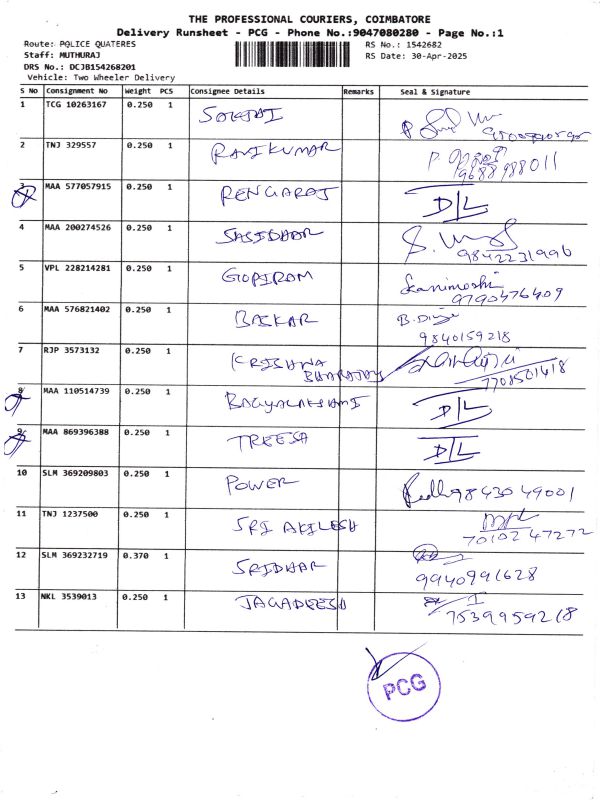 THE PROFESSIONAL COURIERS, COIMBATORE
Delivery Runsheet - PCG - Phone No.:9047080280 - Page No.:1
Route: POLICE QUATERES
RS No.: 1542682
Staff: MUTHURAJ
RS Date: 30-Apr-2025
DRS No.: DCJB154268201
Vehicle: Two Wheeler Delivery
S No Consignment No Weight PCS Consignee Details Remarks Seal & Signature
1 TCG 10263167 0.250 1
2 TNJ 329557 0.250 1 RAVIKUMAR
9688988011
3 MAA 577057915 0.250 1 RENGARAJ D/L
4 MAA 200274526 0.250 1 SASIDHAR
9842231996
5 VPL 228214281 0.250 1 GOPIRAM Kanimozhi
9790476409
6 MAA 576821402 0.250 1 BASKAR
9840159218
7 RJP 3573132 0.250 1 KRISHNA
7708501418
8 MAA 110514739 0.250 1 BAGYALAKSHMI D/L
9 MAA 869396388 0.250 1 TREESA D/L
10 SLM 369209803 0.250 1 POWER 9843049001
11 TNJ 1237500 0.250 1 SRI AKILESH
7010247272
12 SLM 369232719 0.370 1 SRIDHAR
9940991628
13 NKL 3539013 0.250 1 JAGADEESH
7539959218
PCG